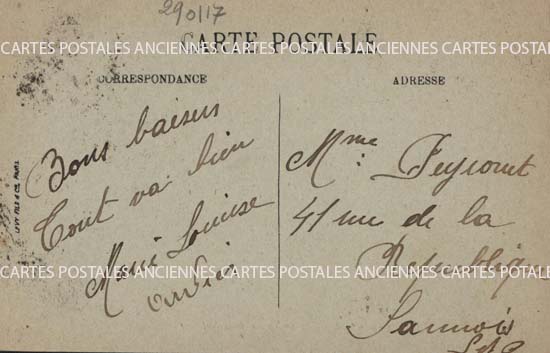 290117
CARTE POSTALE
CARTES POSTALES ANCIENNES CARTES POSTALES ANCIENNES CARTES POSTALES
CORRESPONDANCE
ADRESSE
Bons baisers
Tout va bien
Marie Louise
LEVY FILS & CIE, PARIS
Mme Peyronet
41 rue de la
République
Sannois
CARTES POSTALES ANCIENNES CARTES POSTALES ANCIENNES CARTES POSTALES